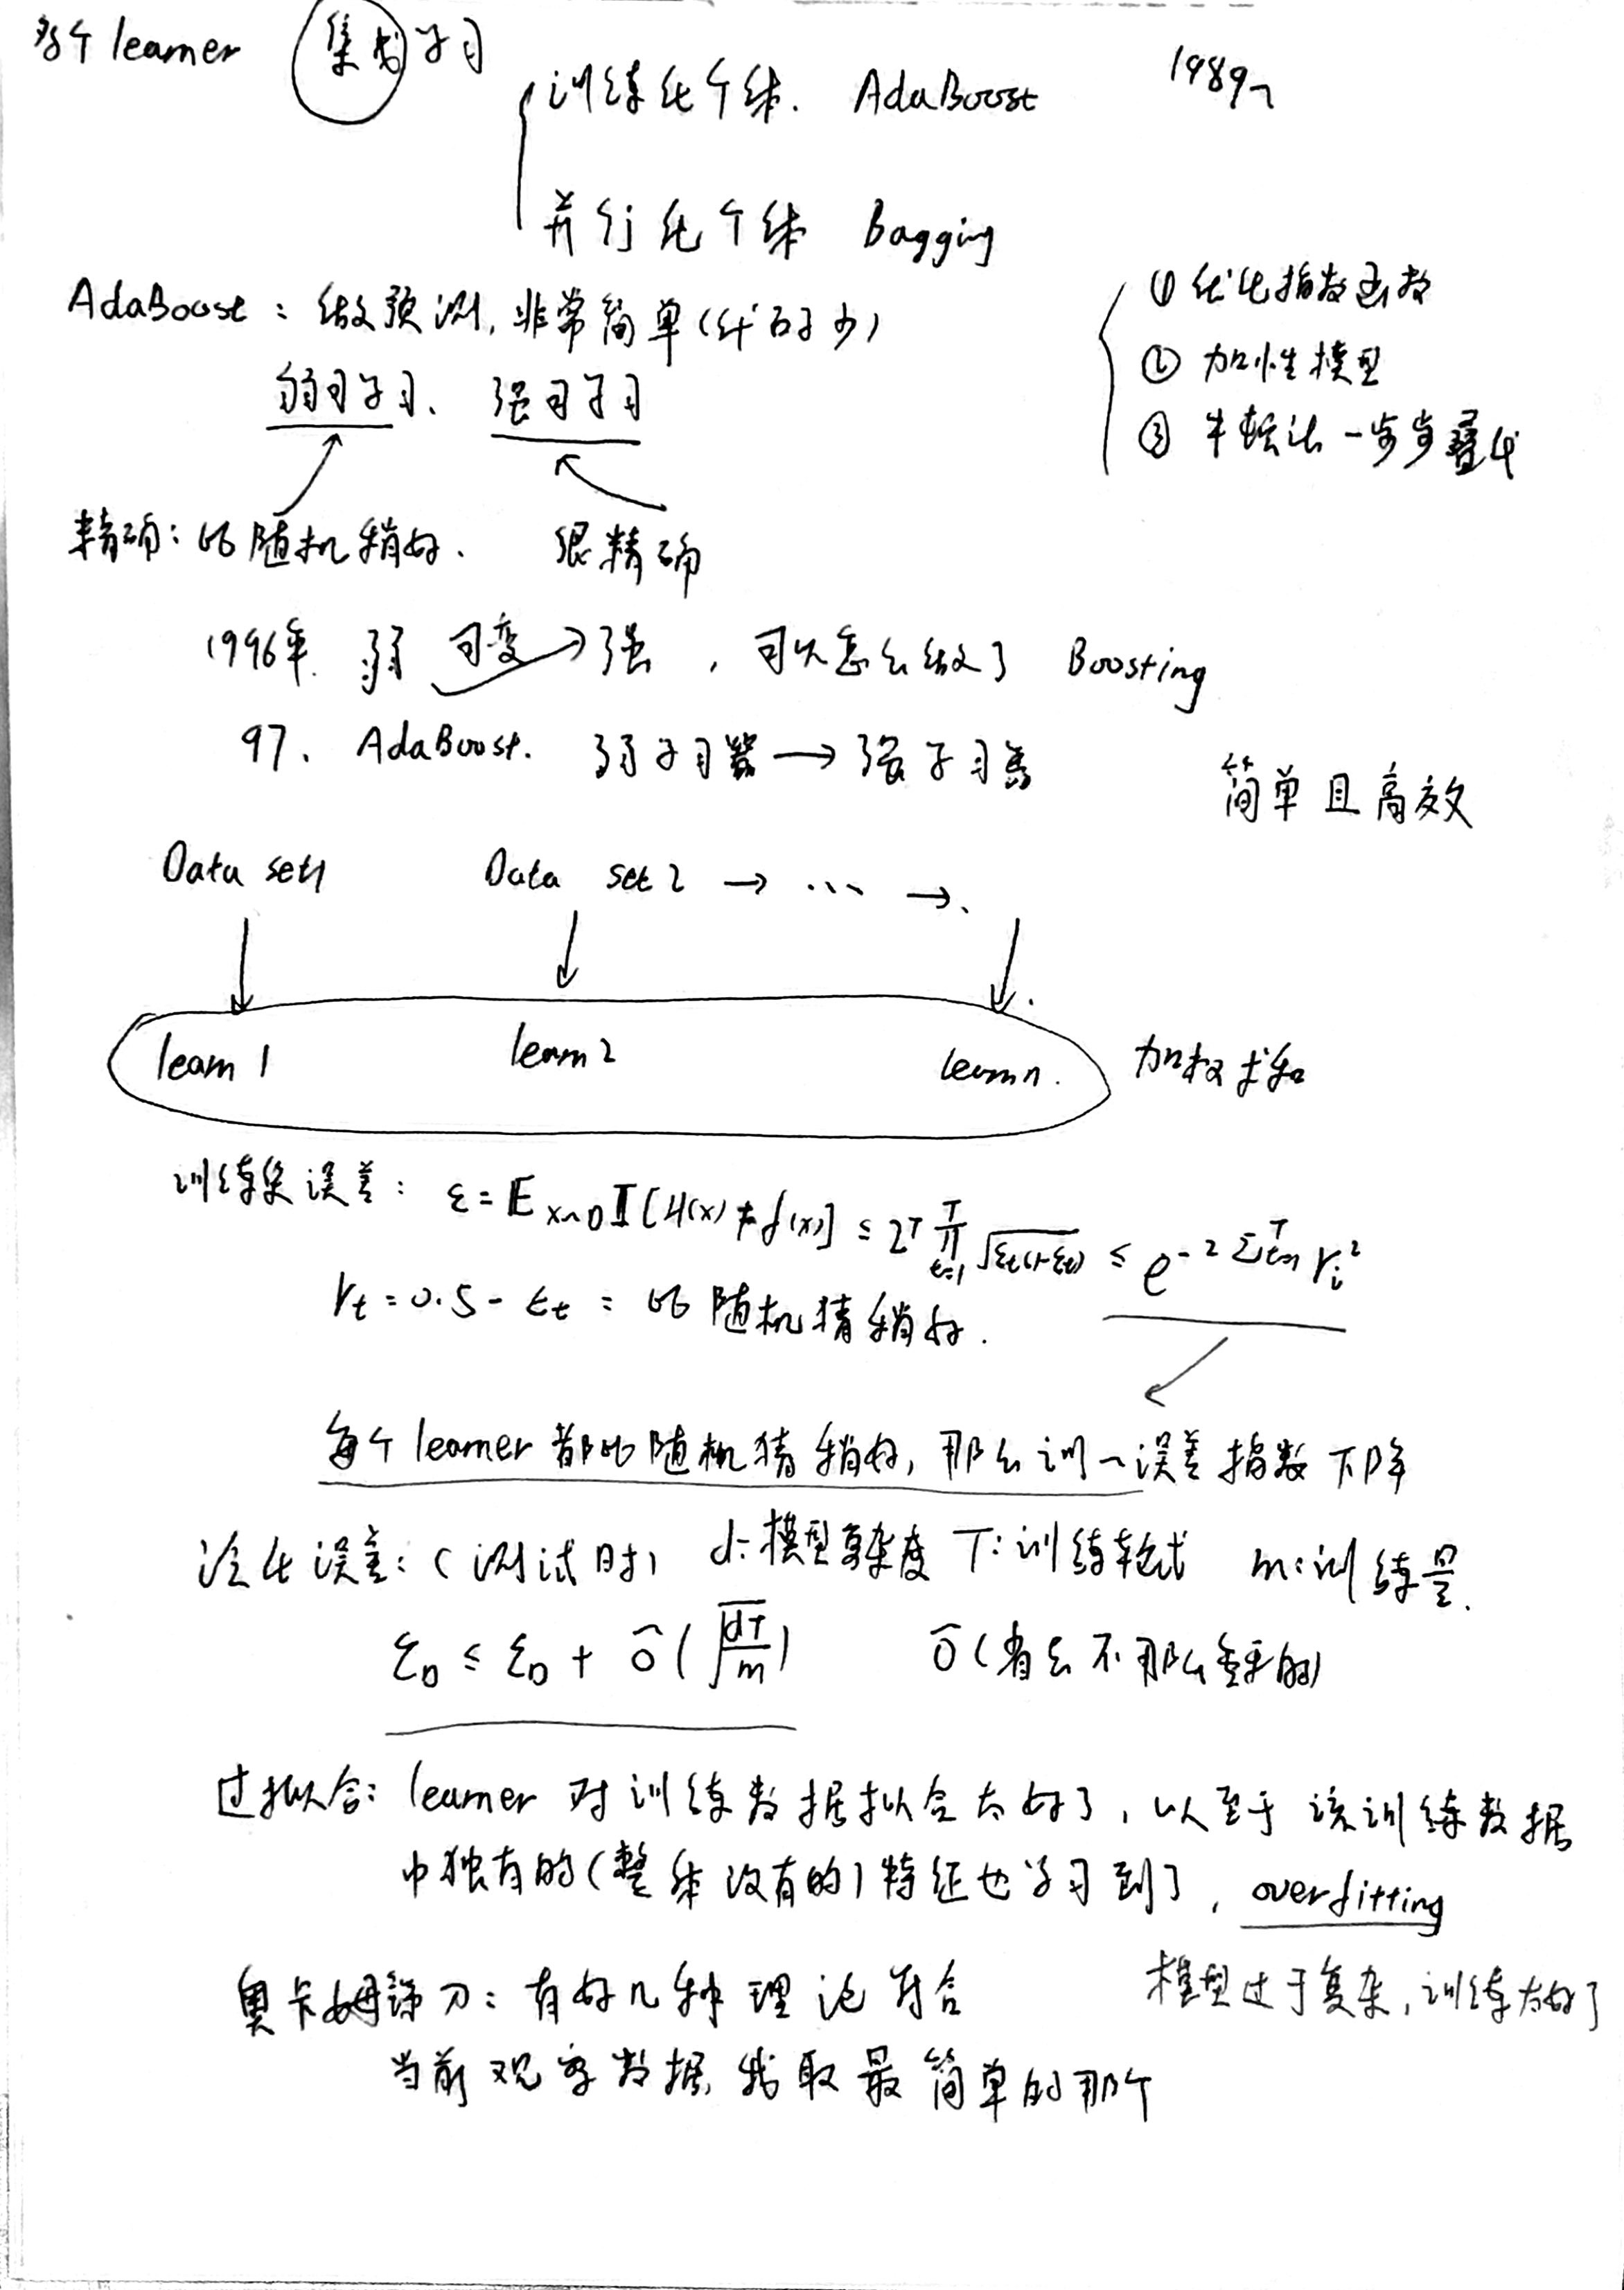 多个 learner 集成学习
训练化个体. AdaBoost 1989年
并行化个体 Bagging
AdaBoost: 做预测, 非常简单(代码少)
弱可学习、 强可学习
① 优化指数函数
② 加性模型
③ 牛顿法一步步叠代
精确: 比随机稍好. 很精确
1996年. 弱 可变→ 强, 可以怎么做了 Boosting
97. AdaBoost. 弱学习器 → 强学习器
简单且高效
Data set1 Data set 2 → ... →.
learn 1 learn 2 learn n. 加权求和
训练集误差: ε = E x~D I[H(x) ≠ f(x)] ≤ 2^T ∏_{t=1}^T √εt(1-εt) ≤ e^{-2 Σ_{t=1}^T γ_i^2}
γt = 0.5 - εt = 比随机猜稍好.
每个 learner 都比随机猜稍好, 那么训~误差指数下降
泛化误差: (测试时) d: 模型复杂度 T: 训练轮数 m: 训练量.
ε_D ≤ ε_D + Õ(√(dT/m)) Õ(省去不那么重要的)
过拟合: learner 对训练数据拟合太好了, 以至于该训练数据
中独有的(整体没有的)特征也学习到了, overfitting
模型过于复杂, 训练太好了
奥卡姆剃刀: 有好几种理论符合
当前观察数据, 我取最简单的那个